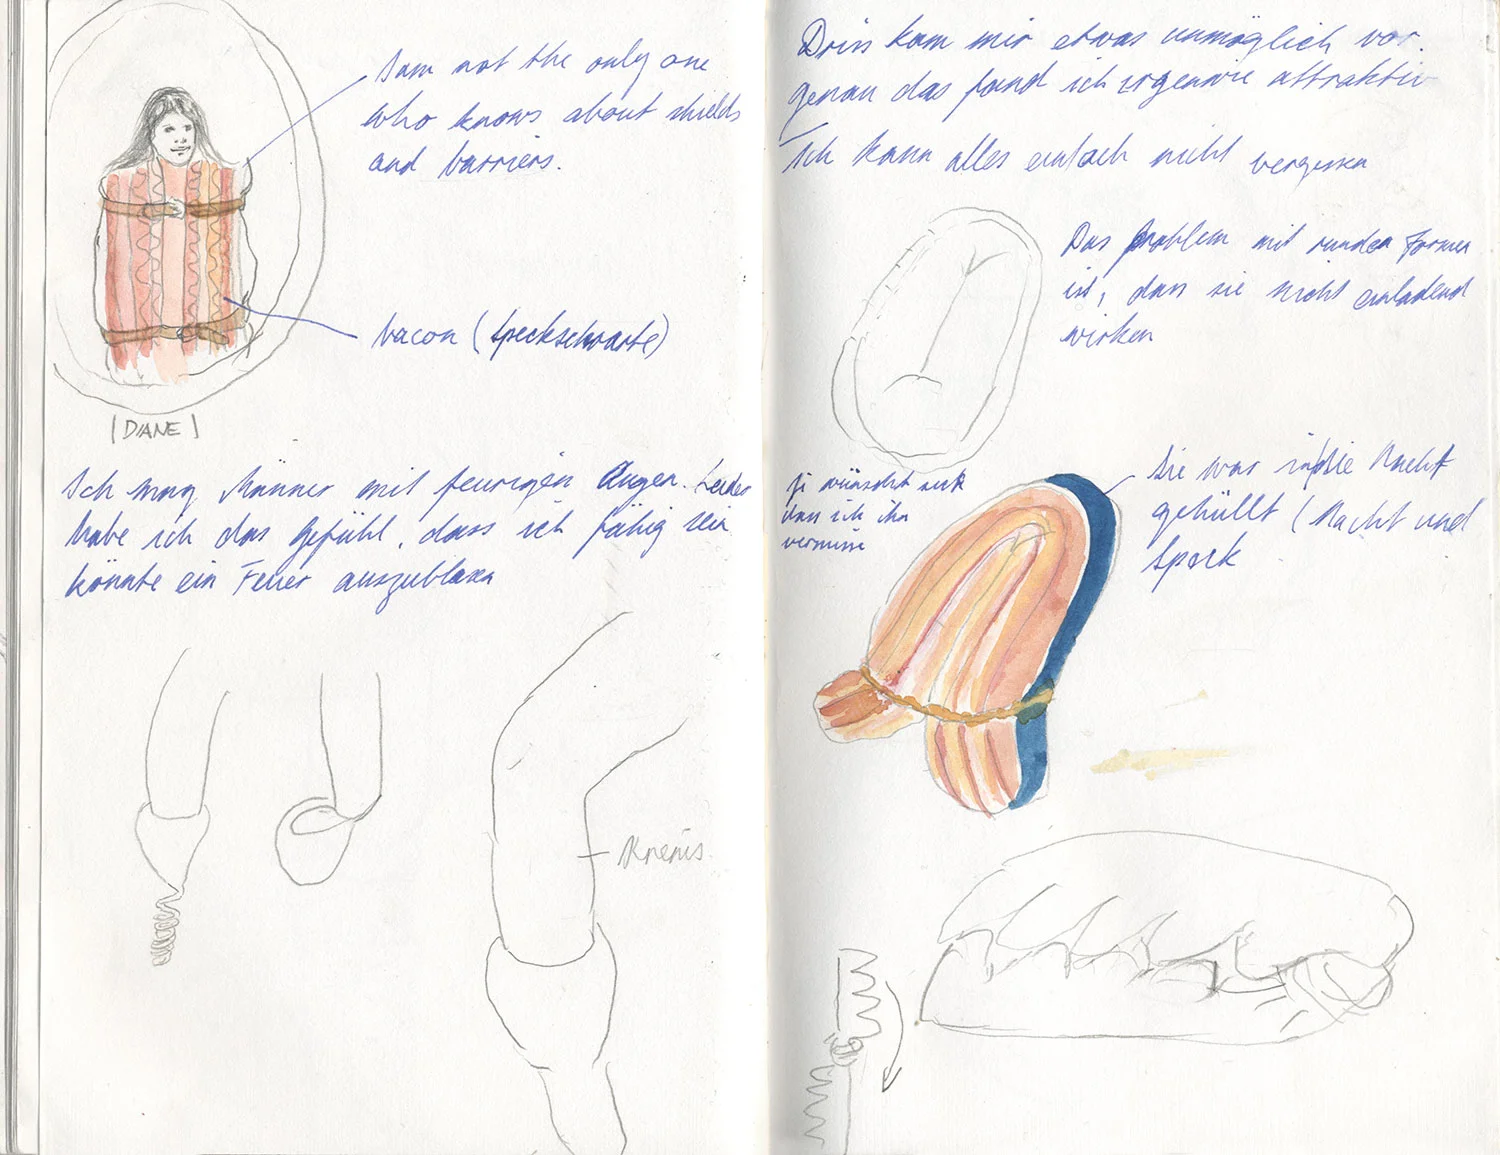 I am not the only one
who knows about shields
and barriers.
bacon (Speckschwarte)
(DIANE)
Ich mag Männer mit feurigen Augen. Leider
habe ich das Gefühl, dass ich fähig sein
könnte ein Feuer auszublasen
Knenis
Driss kam mir etwas unmöglich vor.
genau das fand ich irgenwie attraktiv
Ich kann alles einfach nicht vergessen
Das Problem mit runden Formen
ist, dass sie nicht einladend
wirken
wünscht sich
dass ich ihn
vermisse
Sie war in die Nacht
gehüllt (Nacht und
Speck